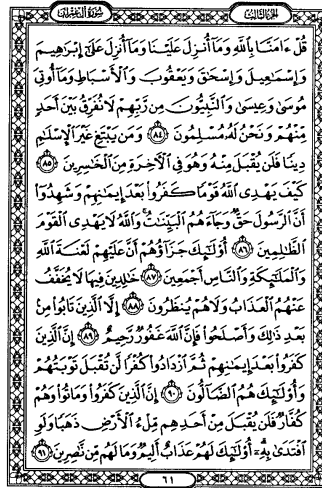 الجزء الثالث
سورة آل عمران
قُلْ ءَامَنَّا بِاللَّهِ وَمَآ أُنزِلَ عَلَيْنَا وَمَآ أُنزِلَ عَلَىٰٓ إِبْرَٰهِيمَ
وَإِسْمَٰعِيلَ وَإِسْحَٰقَ وَيَعْقُوبَ وَالْأَسْبَاطِ وَمَآ أُوتِىَ
مُوسَىٰ وَعِيسَىٰ وَالنَّبِيُّونَ مِن رَّبِّهِمْ لَا نُفَرِّقُ بَيْنَ أَحَدٍ
مِّنْهُمْ وَنَحْنُ لَهُۥ مُسْلِمُونَ ٨٤ وَمَن يَبْتَغِ غَيْرَ الْإِسْلَٰمِ
دِينًا فَلَن يُقْبَلَ مِنْهُ وَهُوَ فِى الْءَاخِرَةِ مِنَ الْخَٰسِرِينَ ٨٥
كَيْفَ يَهْدِى اللَّهُ قَوْمًا كَفَرُوا بَعْدَ إِيمَٰنِهِمْ وَشَهِدُوٓا
أَنَّ الرَّسُولَ حَقٌّ وَجَآءَهُمُ الْبَيِّنَٰتُ وَاللَّهُ لَا يَهْدِى الْقَوْمَ
الظَّٰلِمِينَ ٨٦ أُو۟لَٰٓئِكَ جَزَآؤُهُمْ أَنَّ عَلَيْهِمْ لَعْنَةَ اللَّهِ
وَالْمَلَٰٓئِكَةِ وَالنَّاسِ أَجْمَعِينَ ٨٧ خَٰلِدِينَ فِيهَا لَا يُخَفَّفُ
عَنْهُمُ الْعَذَابُ وَلَا هُمْ يُنظَرُونَ ٨٨ إِلَّا الَّذِينَ تَابُوا مِنۢ
بَعْدِ ذَٰلِكَ وَأَصْلَحُوا فَإِنَّ اللَّهَ غَفُورٌ رَّحِيمٌ ٨٩ إِنَّ الَّذِينَ
كَفَرُوا بَعْدَ إِيمَٰنِهِمْ ثُمَّ ازْدَادُوا كُفْرًا لَّن تُقْبَلَ تَوْبَتُهُمْ
وَأُو۟لَٰٓئِكَ هُمُ الضَّآلُّونَ ٩٠ إِنَّ الَّذِينَ كَفَرُوا وَمَاتُوا وَهُمْ
كُفَّارٌ فَلَن يُقْبَلَ مِنْ أَحَدِهِم مِّلْءُ الْأَرْضِ ذَهَبًا وَلَوِ
افْتَدَىٰ بِهِۦٓ أُو۟لَٰٓئِكَ لَهُمْ عَذَابٌ أَلِيمٌ وَمَا لَهُم مِّن نَّٰصِرِينَ ٩١
٦١